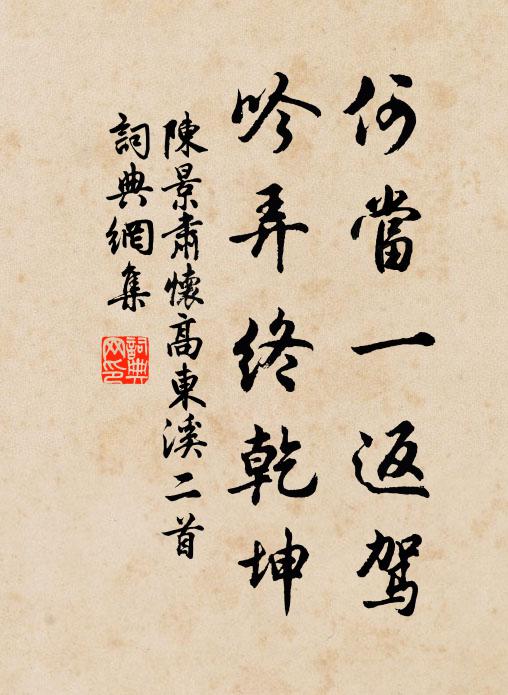 何當一返駕
吟弄終乾坤
陳景肅懷高東溪二首
詞典網集
詞典网印